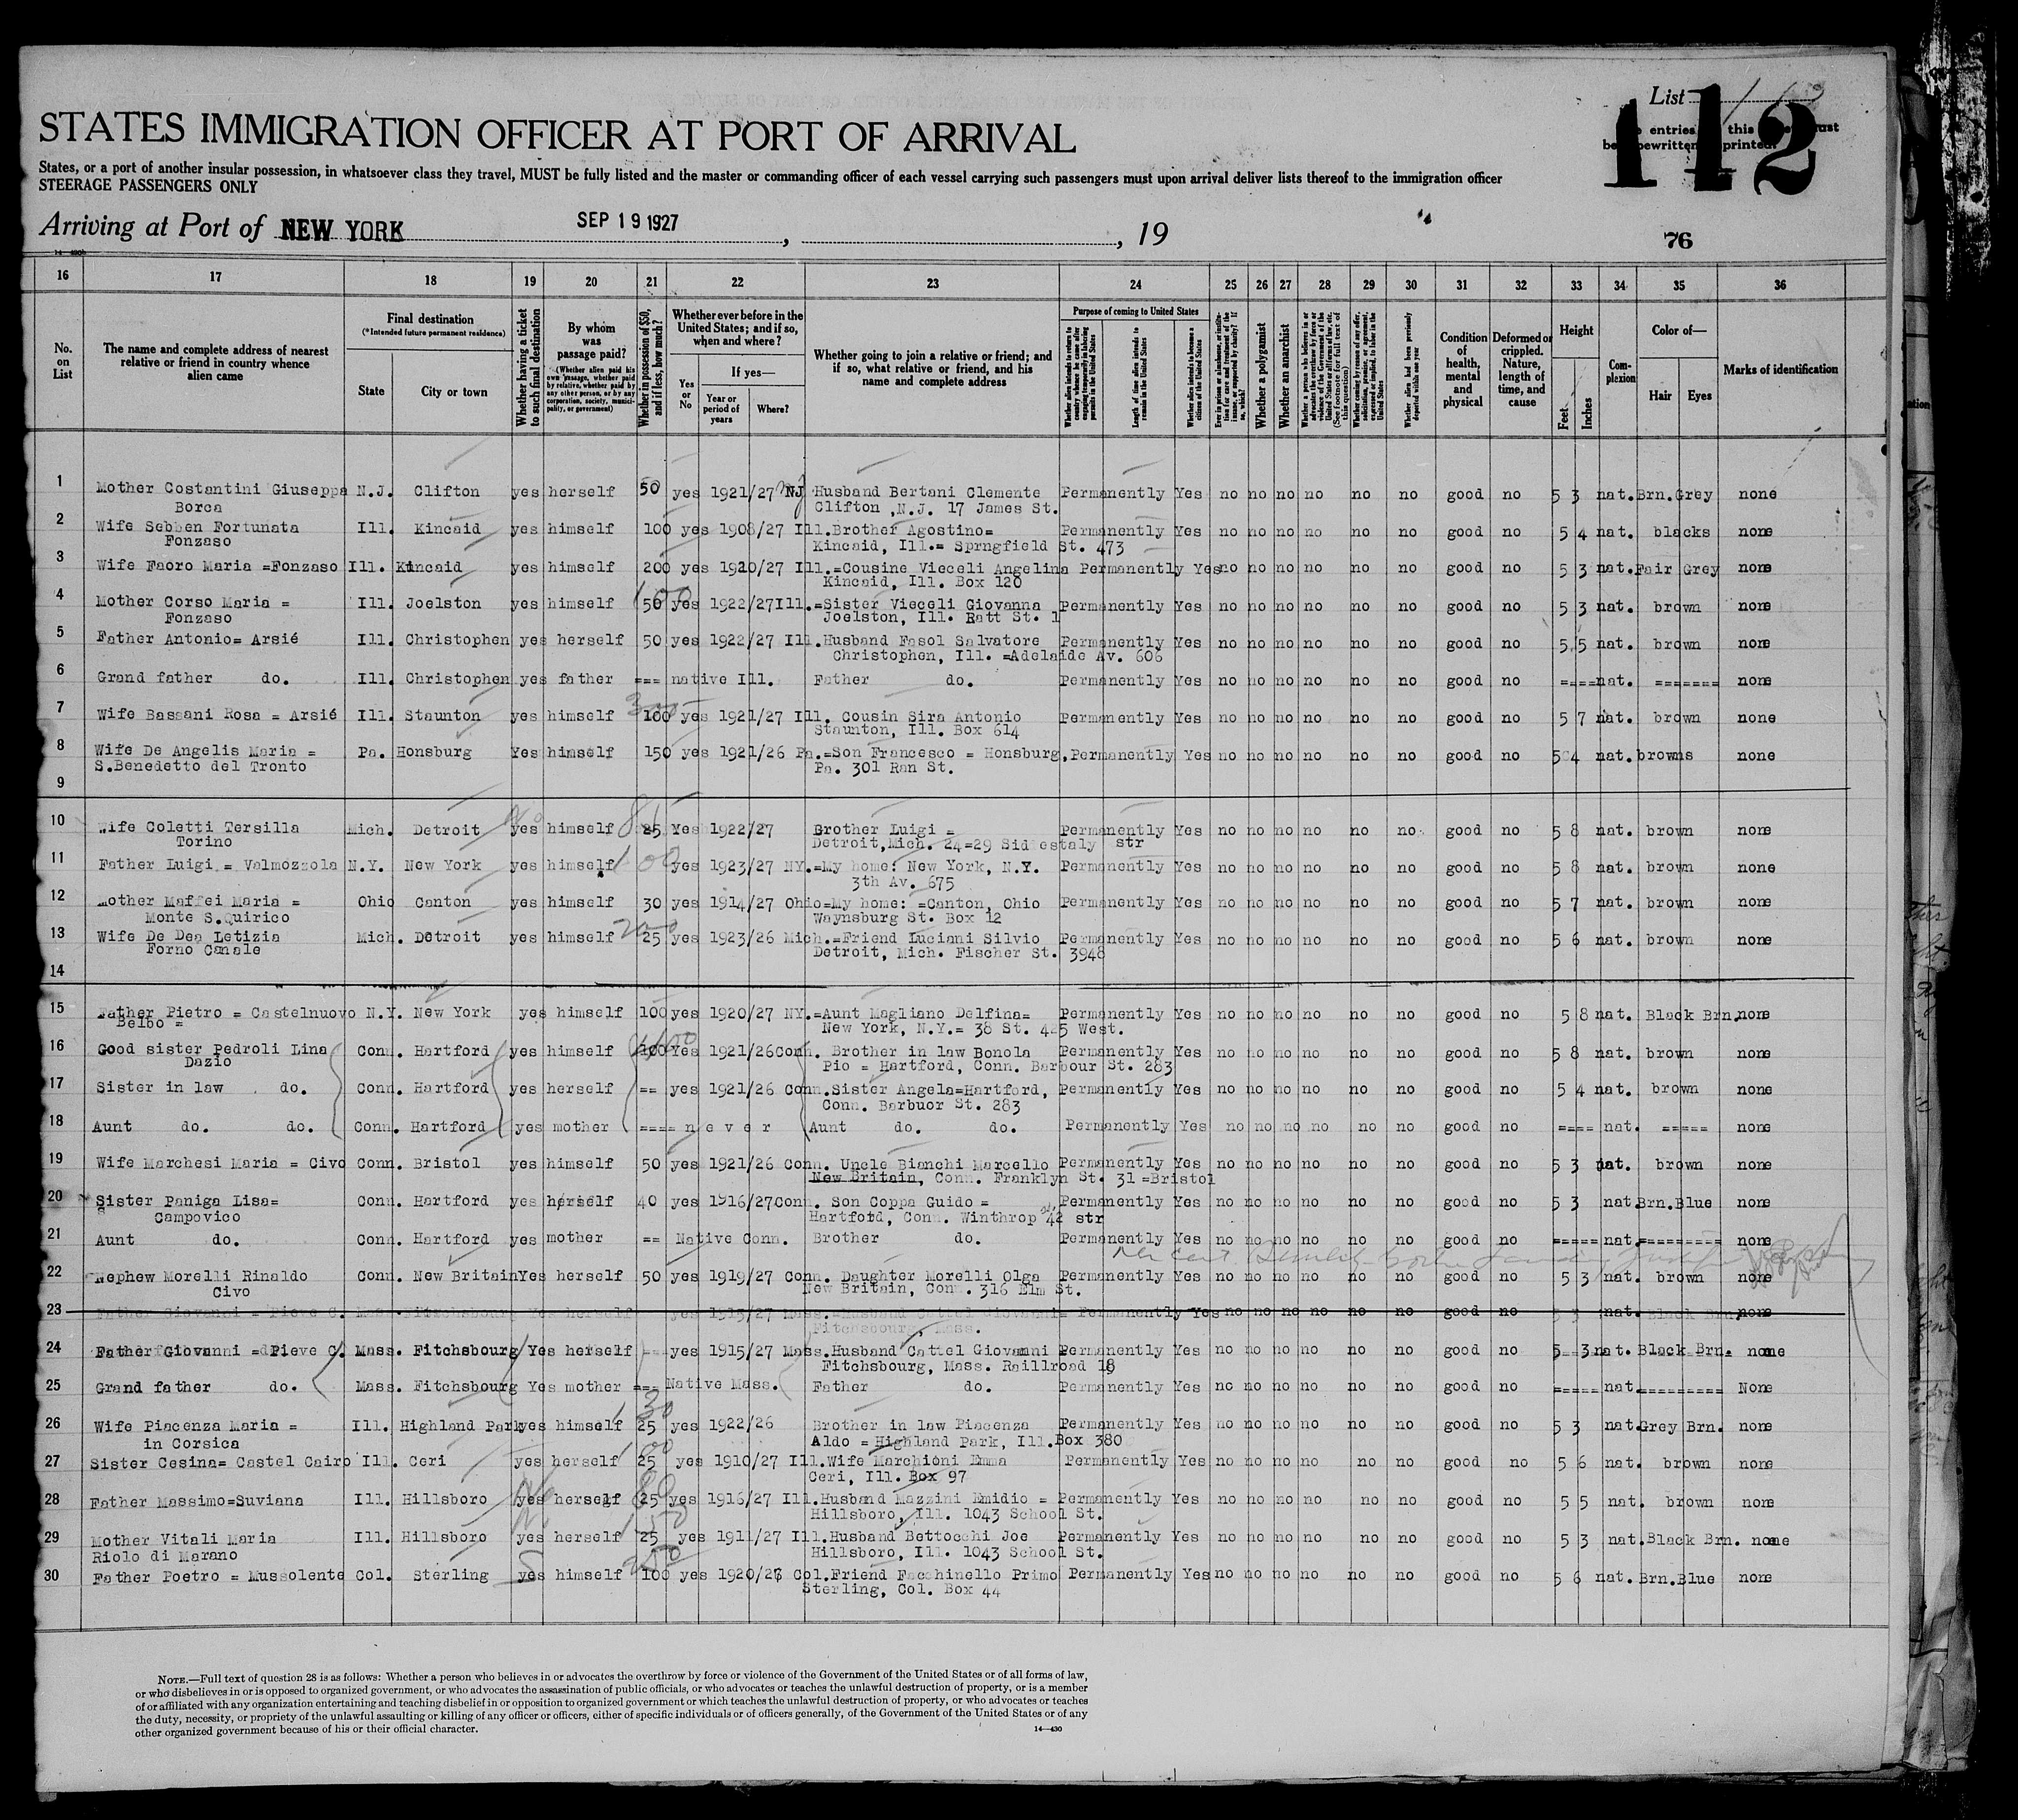 List
112
STATES IMMIGRATION OFFICER AT PORT OF ARRIVAL
States, or a port of another insular possession, in whatsoever class they travel, MUST be fully listed and the master or commanding officer of each vessel carrying such passengers must upon arrival deliver lists thereof to the immigration officer
STEERAGE PASSENGERS ONLY
Arriving at Port of NEW YORK SEP 19 1927, , 19
76
16 17 18 19 20 21 22 23 24 25 26 27 28 29 30 31 32 33 34 35 36
No. on List
The name and complete address of nearest relative or friend in country whence alien came
Final destination
(*Intended future permanent residence)
State
City or town
Whether having a ticket to such final destination
By whom was passage paid?
(Whether alien paid his own passage, whether paid by relative, whether paid by any other person, or by any corporation, society, municipality, or government)
Whether in possession of $50, and if less, how much?
Whether ever before in the United States; and if so, when and where?
Yes or No
If yes—
Year or period of years
Where?
Whether going to join a relative or friend; and if so, what relative or friend, and his name and complete address
Purpose of coming to United States
Length of time alien intends to remain in the United States
Whether alien intends to become a citizen of the United States
Whether a polygamist
Whether an anarchist
Whether alien had been previously deported within one year
Condition of health, mental and physical
Deformed or crippled. Nature, length of time, and cause
Height
Feet
Inches
Complexion
Color of—
Hair
Eyes
Marks of identification
1 Mother Costantini Giuseppa N.J. Clifton yes herself 50 yes 1921/27 NJ Husband Bertani Clemente Permanently Yes no no no no no no good no 5 3 nat. Brn. Grey none
Borca Clifton ,N.J. 17 James St.
2 Wife Sebben Fortunata Ill. Kincaid yes himself 100 yes 1908/27 Ill. Brother Agostino= Permanently Yes no no no no no no good no 5 4 nat. blacks none
Fonzaso Kincaid, Ill.= Sprngfield St. 473
3 Wife Faoro Maria =Fonzaso Ill. Kincaid yes himself 200 yes 1920/27 Ill.=Cousine Vieceli Angelina Permanently Yes no no no no no no good no 5 3 nat. Fair Grey none
Kincaid, Ill. Box 120
4 Mother Corso Maria = Ill. Joelston yes himself 50 100 yes 1922/27 Ill.=Sister Vieceli Giovanna Permanently Yes no no no no no no good no 5 3 nat. brown none
Fonzaso Joelston, Ill. Ratt St. 1
5 Father Antonio= Arsié Ill. Christophen yes herself 50 yes 1922/27 Ill. Husband Fasol Salvatore Permanently Yes no no no no no no good no 5 5 nat. brown none
Christophen, Ill. =Adelaide Av. 606
6 Grand father do. Ill. Christophen yes father === native Ill. Father do. Permanently Yes no no no no no no good no ==== nat. ======= none
7 Wife Bassani Rosa = Arsié Ill. Staunton yes himself 100 yes 1921/27 Ill. Cousin Sira Antonio Permanently Yes no no no no no no good no 5 7 nat. brown none
Staunton, Ill. Box 614
8 Wife De Angelis Maria = Pa. Honsburg Yes himself 150 yes 1921/26 Pa.=Son Francesco = Honsburg, Permanently Yes no no no no no no good no 5 4 nat. browns none
S.Benedetto del Tronto Pa. 301 Ran St.
9
10 Wife Coletti Tersilla Mich. Detroit yes himself 25 Yes 1922/27 Brother Luigi = Permanently Yes no no no no no no good no 5 8 nat. brown none
Torino Detroit, Mich. 24=29 Sidestaly str
11 Father Luigi = Valmozzola N.Y. New York yes himself 100 yes 1923/27 NY.=My home: New York, N.Y. Permanently Yes no no no no no no good no 5 8 nat. brown none
3th Av. 675
12 Mother Maffei Maria = Ohio Canton yes himself 30 yes 1914/27 Ohio=My home: =Canton, Ohio Permanently Yes no no no no no no good no 5 7 nat. brown none
Monte S.Quirico Waynsburg St. Box 12
13 Wife De Dea Letizia Mich. Detroit yes himself 200 25 yes 1923/26 Mich.=Friend Luciani Silvio Permanently Yes no no no no no no good no 5 6 nat. brown none
Forno Canale Detroit, Mich. Fischer St. 3948
14
15 Father Pietro = Castelnuovo N.Y. New York yes himself 100 yes 1920/27 NY.=Aunt Magliano Delfina= Permanently Yes no no no no no no good no 5 8 nat. Black Brn. none
Belbo = New York, N.Y.= 38 St. 425 West.
16 Good sister Pedroli Lina Conn. Hartford yes himself 100 Yes 1921/26 Conn. Brother in law Bonola Permanently Yes no no no no no no good no 5 8 nat. brown none
Dazio Pio = Hartford, Conn. Barbour St. 283
17 Sister in law do. Conn. Hartford yes herself == yes 1921/26 Conn. Sister Angela=Hartford, Permanently Yes no no no no no no good no 5 4 nat. brown none
Conn. Barbuor St. 283
18 Aunt do. do. Conn. Hartford yes mother ==== n e v e r Aunt do. do. Permanently Yes no no no no no no good no ==== nat. ===== none
19 Wife Marchesi Maria = Civo Conn. Bristol yes himself 50 yes 1921/26 Conn. Uncle Bianchi Marcello Permanently Yes no no no no no no good no 5 3 nat. brown none
New Britain, Conn. Franklyn St. 31 =Bristol
20 Sister Paniga Lisa= Conn. Hartford yes herself 40 yes 1916/27 Conn. Son Coppa Guido = Permanently Yes no no no no no no good no 5 3 nat. Brn. Blue none
Campovico Hartford, Conn. Winthrop 42 str
21 Aunt do. Conn. Hartford yes mother == Native Conn. Brother do. Permanently Yes no no no no no no good no ==== nat. ======== none
22 Nephew Morelli Rinaldo Conn. New Britain Yes herself 50 yes 1919/27 Conn. Daughter Morelli Olga Permanently Yes no no no no no no good no 5 3 nat. brown none
Civo New Britain, Conn. 316 Elm St.
23 Father Giovanni = Pieve C. Mass. Fitchsbourg Yes herself yes 1915/27 Mass.=Husband Cattel Giovanni= Permanently Yes no no no no no no good no 5 3 nat. Black Brn. none
Fitchsbourg, Mass.
24 Father Giovanni = Pieve C. Mass. Fitchsbourg Yes herself == yes 1915/27 Mass. Husband Cattel Giovanni Permanently Yes no no no no no no good no 5 3 nat. Black Brn. none
Fitchsbourg, Mass. Raillroad 18
25 Grand father do. Mass. Fitchsbourg Yes mother === Native Mass. Father do. Permanently Yes no no no no no no good no ==== nat. ======== None
26 Wife Piacenza Maria = Ill. Highland Park yes himself 25 yes 1922/26 Brother in law Piacenza Permanently Yes no no no no no no good no 5 3 nat. Grey Brn. none
in Corsica Aldo = Highland Park, Ill. Box 380
27 Sister Cesina= Castel Cairo Ill. Ceri yes herself 100 25 yes 1910/27 Ill. Wife Marchioni Emma Permanently Yes no no no no no no good no 5 6 nat. brown none
Ceri, Ill. Box 97
28 Father Massimo=Suviana Ill. Hillsboro yes herself 25 yes 1916/27 Ill. Husband Mazzini Emidio = Permanently Yes no no no no no no good no 5 5 nat. brown none
Hillsboro, Ill. 1043 School St.
29 Mother Vitali Maria Ill. Hillsboro yes herself 25 yes 1911/27 Ill. Husband Bettocchi Joe Permanently Yes no no no no no no good no 5 3 nat. Black Brn. none
Riolo di Marano Hillsboro, Ill. 1043 School St.
30 Father Poetro = Mussolente Col. Sterling yes himself 100 yes 1920/26 Col. Friend Facchinello Primo Permanently Yes no no no no no no good no 5 6 nat. Brn. Blue none
Sterling, Col. Box 44
NOTE.—Full text of question 28 is as follows: Whether a person who believes in or advocates the overthrow by force or violence of the Government of the United States or of all forms of law,
or who disbelieves in or is opposed to organized government, or who advocates the assassination of public officials, or who advocates or teaches the unlawful destruction of property, or is a member
of or affiliated with any organization entertaining and teaching disbelief in or opposition to organized government or which teaches the unlawful destruction of property, or who advocates or teaches
the duty, necessity, or propriety of the unlawful assaulting or killing of any officer or officers, either of specific individuals or of officers generally, of the Government of the United States or of any
other organized government because of his or their official character.
14—430